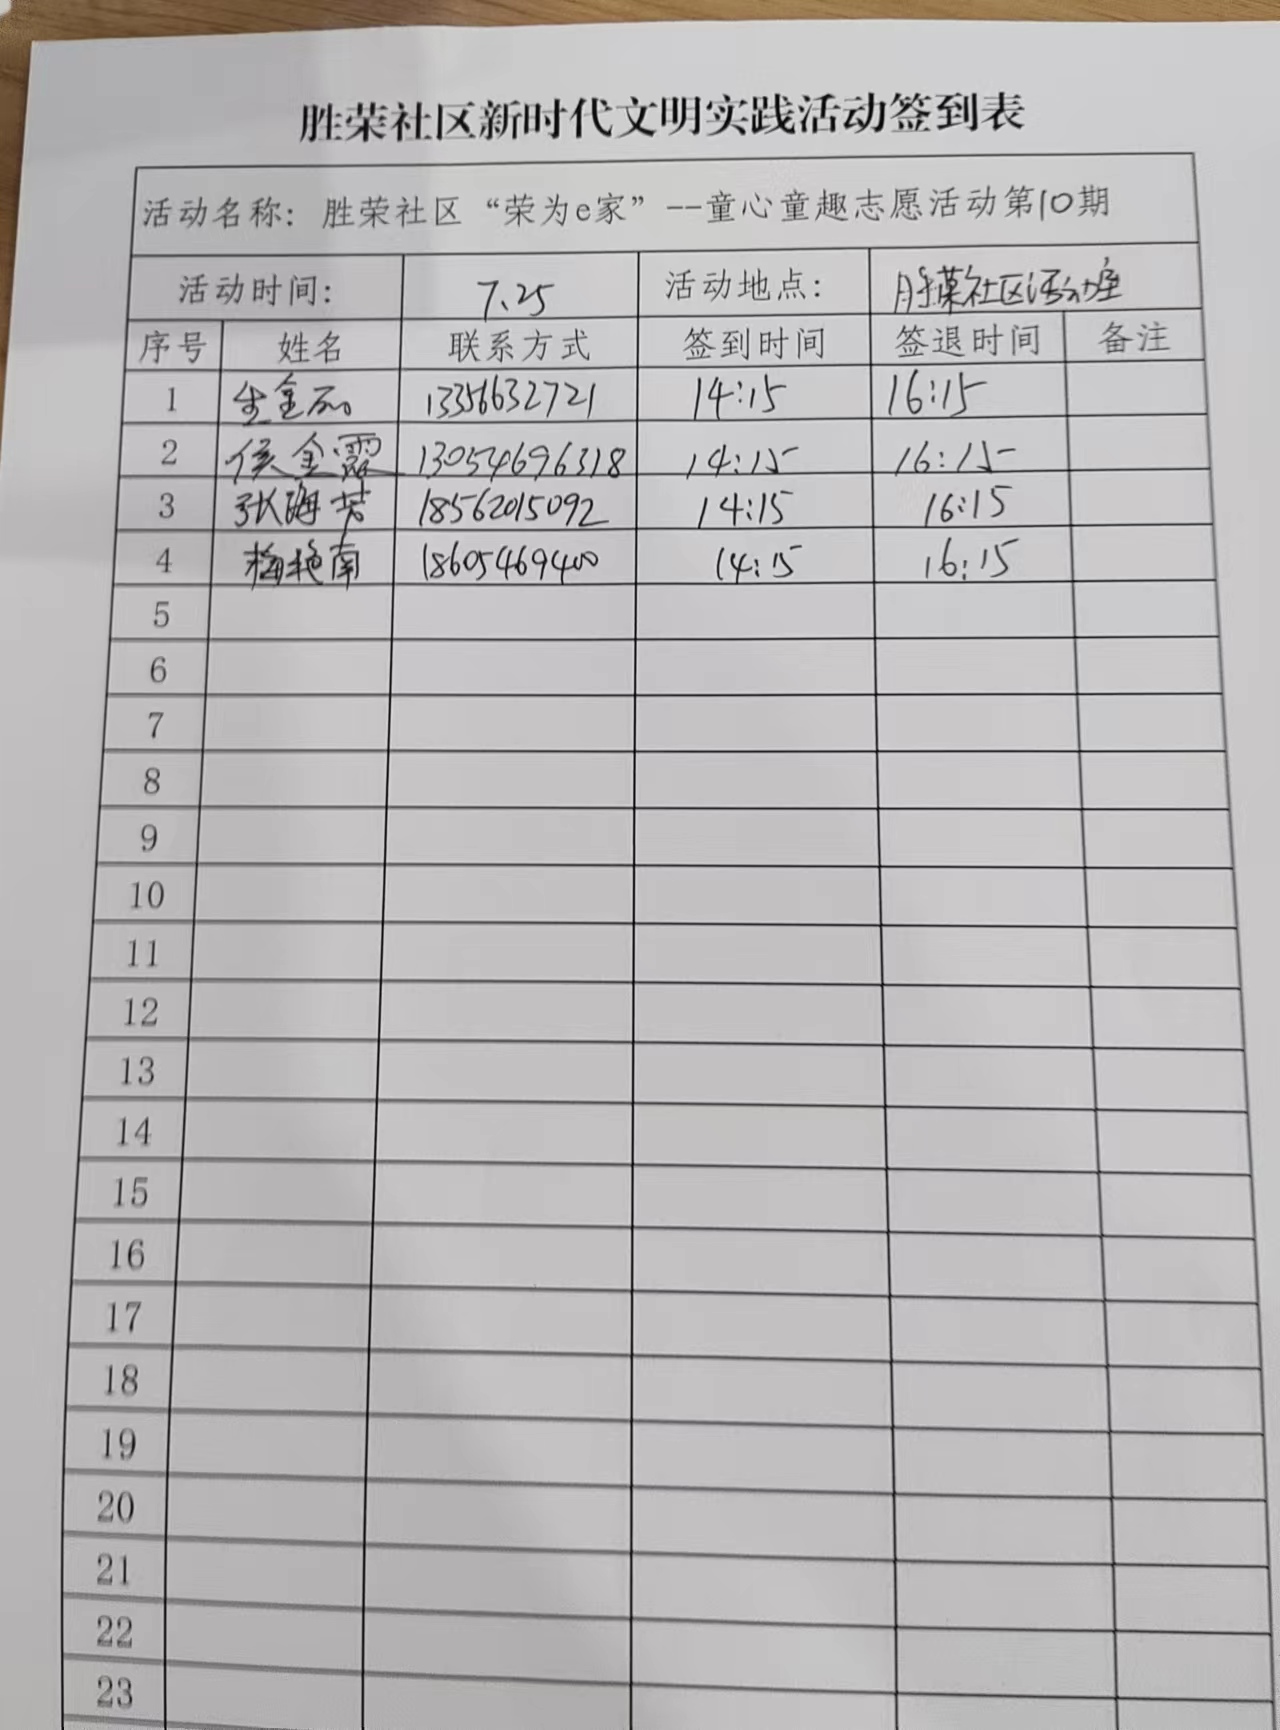 胜荣社区新时代文明实践活动签到表
活动名称: 胜荣社区“荣为e家”--童心童趣志愿活动第10期
活动时间: 7.25 活动地点: 胜荣社区活动室
序号 姓名 联系方式 签到时间 签退时间 备注
1 生金 13356632721 14:15 16:15
2 侯金霞 13054696318 14:15 16:15
3 张海芳 18562015092 14:15 16:15
4 梅艳南 18605469400 14:15 16:15
5
6
7
8
9
10
11
12
13
14
15
16
17
18
19
20
21
22
23